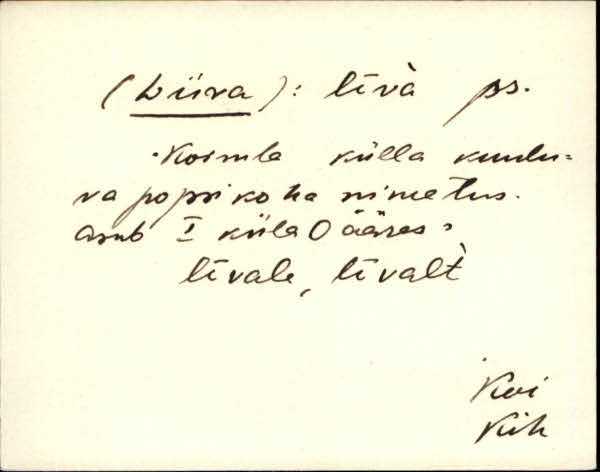 (Liiva): līvà ps.
Korsula külla kuulu-
va popsikoha nimetus.
Asub I küla O ääres.
līvale, līvalt̀
Koi
Kih